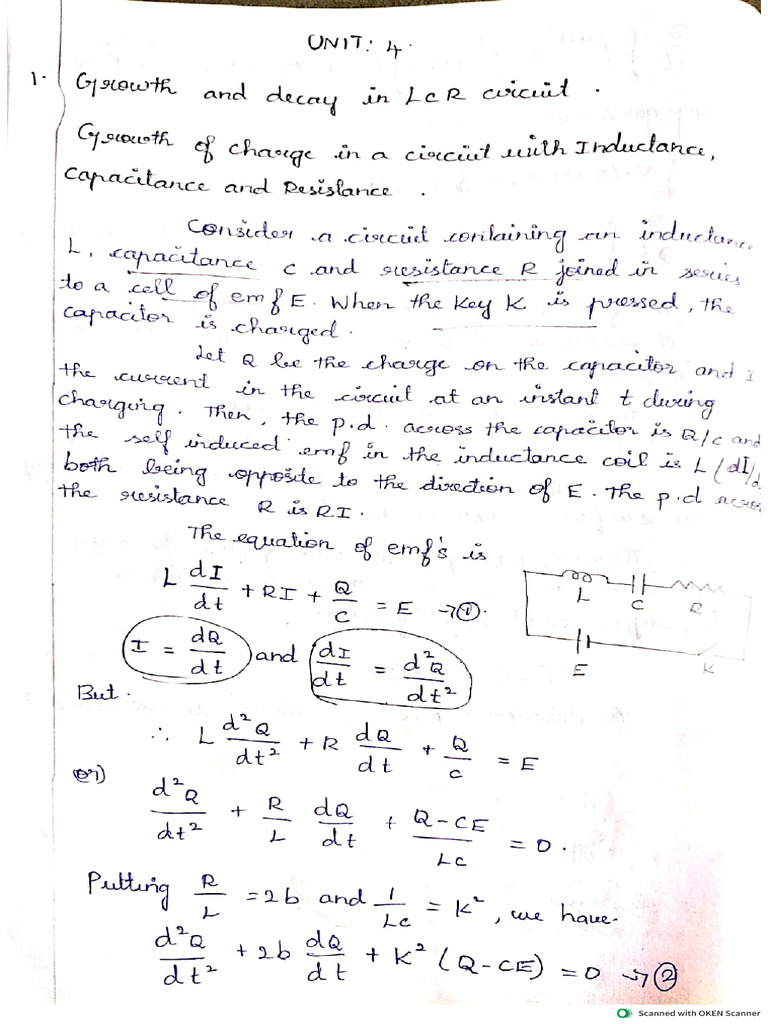 UNIT: 4.
1. Growth and decay in LCR circuit.
Growth of charge in a circuit with Inductance,
Capacitance and Resistance.
Consider a circuit containing an inductance
L, capacitance C and resistance R joined in series
to a cell of emf E. When the key K is pressed, the
capacitor is charged.
Let Q be the charge on the capacitor and I
the current in the circuit at an instant t during
charging. Then, the p.d. across the capacitor is Q/C and
the self induced emf in the inductance coil is L (dI/d
both being opposite to the direction of E. The p.d across
the resistance R is RI.
The equation of emf's is
L dI/dt + RI + Q/C = E → ①.
L C R
E K
I = dQ/dt and dI/dt = d²Q/dt²
But.
∴ L d²Q/dt² + R dQ/dt + Q/C = E
(or)
d²Q/dt² + R/L dQ/dt + Q-CE/LC = 0.
Putting R/L = 2b and 1/LC = K², we have.
d²Q/dt² + 2b dQ/dt + K² (Q-CE) = 0 → ②
Scanned with OKEN Scanner